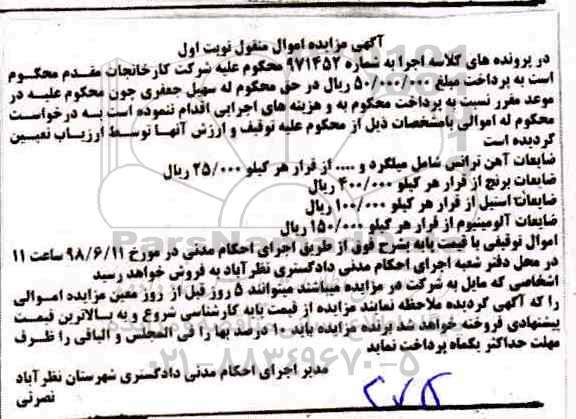 آگهی مزایده اموال منقول نوبت اول
در پرونده های کلاسه اجرا به شماره ۹۷۱۴۵۲ محکوم علیه شرکت کارخانجات مقدم محکوم
است به پرداخت مبلغ ۵۰/۰۰۰/۰۰۰ ریال در حق محکوم له سهیل جعفری چون محکوم علیه در
موعد مقرر نسبت به پرداخت محکوم به و هزینه های اجرایی اقدام ننموده است به درخواست
محکوم له اموالی بامشخصات ذیل از محکوم علیه توقیف و ارزش آنها توسط ارزیاب تعیین
گردیده است
ضایعات آهن ترانس شامل میلگرد و .... از قرار هر کیلو ۲۵/۰۰۰ ریال
ضایعات برنج از قرار هر کیلو ۴۰۰/۰۰۰ ریال
ضایعات استیل از قرار هر کیلو ۱۰۰/۰۰۰ ریال
ضایعات آلومینیوم از قرار هر کیلو ۱۵۰/۰۰۰ ریال
اموال توقیفی با قیمت پایه بشرح فوق از طریق اجرای احکام مدنی در مورخ ۹۸/۶/۱۱ ساعت ۱۱
در محل دفتر شعبه اجرای احکام مدنی دادگستری نظرآباد به فروش خواهد رسید
اشخاصی که مایل به شرکت در مزایده میباشند میتوانند ۵ روز قبل از روز معین مزایده اموالی
را که آگهی گردیده ملاحظه نمایند مزایده از قیمت پایه کارشناسی شروع و به بالاترین قیمت
پیشنهادی فروخته خواهد شد برنده مزایده باید ۱۰ درصد بها را فی المجلس و الباقی را ظرف
مهلت حداکثر یکماه پرداخت نماید
مدیر اجرای احکام مدنی دادگستری شهرستان نظرآباد
نصرتی
۰۲۱-۸۸۳۴۹۶۷۰-۵